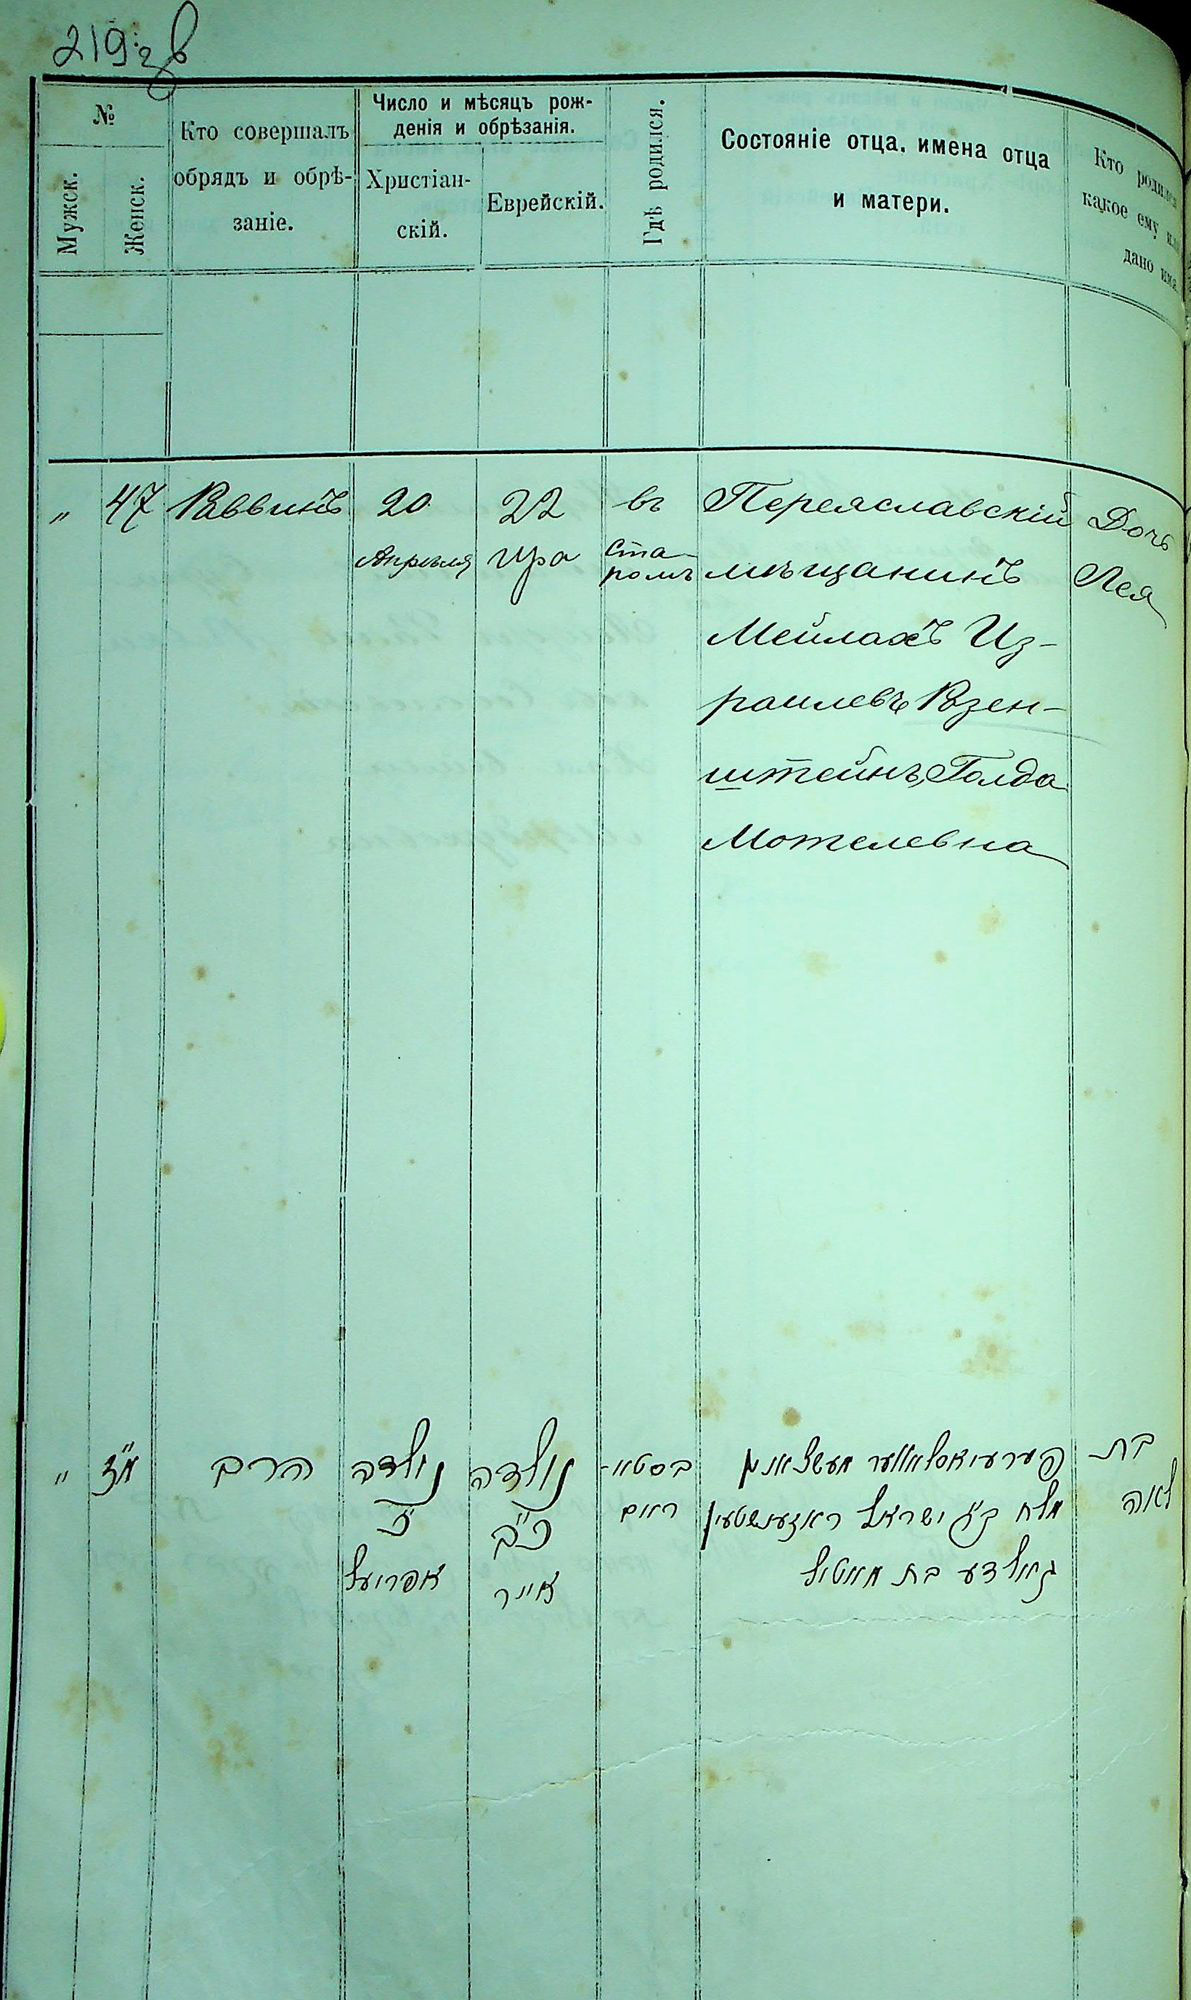 219 зв
№
Мужск.
Женск.
Кто совершалъ
обрядъ и обрѣ-
заніе.
Число и мѣсяцъ рож-
денія и обрѣзанія.
Христіан-
скій.
Еврейскій.
Гдѣ родился.
Состояніе отца, имена отца
и матери.
Кто родился
какое ему или
дано имя
" 47 Раввинъ
20
Апрѣля
22
Іра
въ
Ста
ромъ
Переяславскій
мѣщанинъ
Мейлахъ Из-
раилевъ Розен-
штейнъ, Голда
Мотелевна
Дочь
Лея
" מ"ז הרב
נולדה
כ'
אפריעל
נולדה
כ"ב
אייר
בסטא-
ראים
פערעיאסלאווער מעשצאנין
מלח ב"ר ישראל ראזענשטיין
גאלדע בת מאטיל
בת
לאה